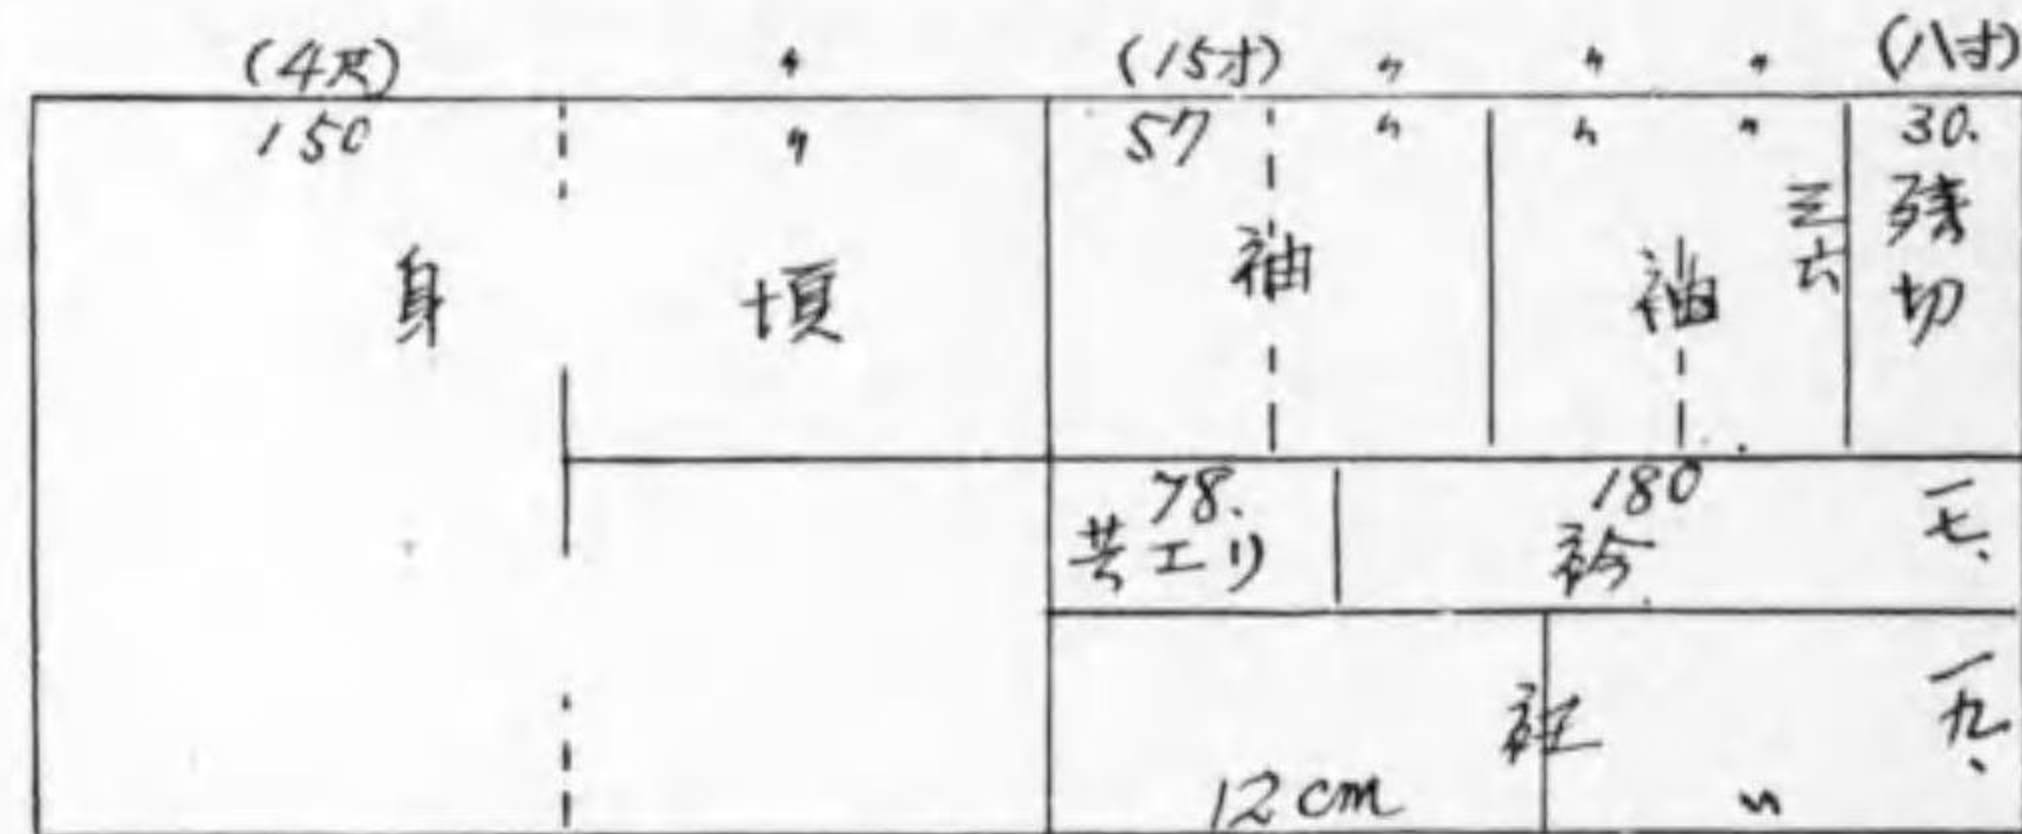 (4尺) 〃 (15寸) 〃 〃 〃 (八寸)
150 〃 57 〃 〃 〃 30.
身頃 袖 袖 三六 残切
78. 180 一七、
共エリ 衿
衽 一九、
12cm 〃